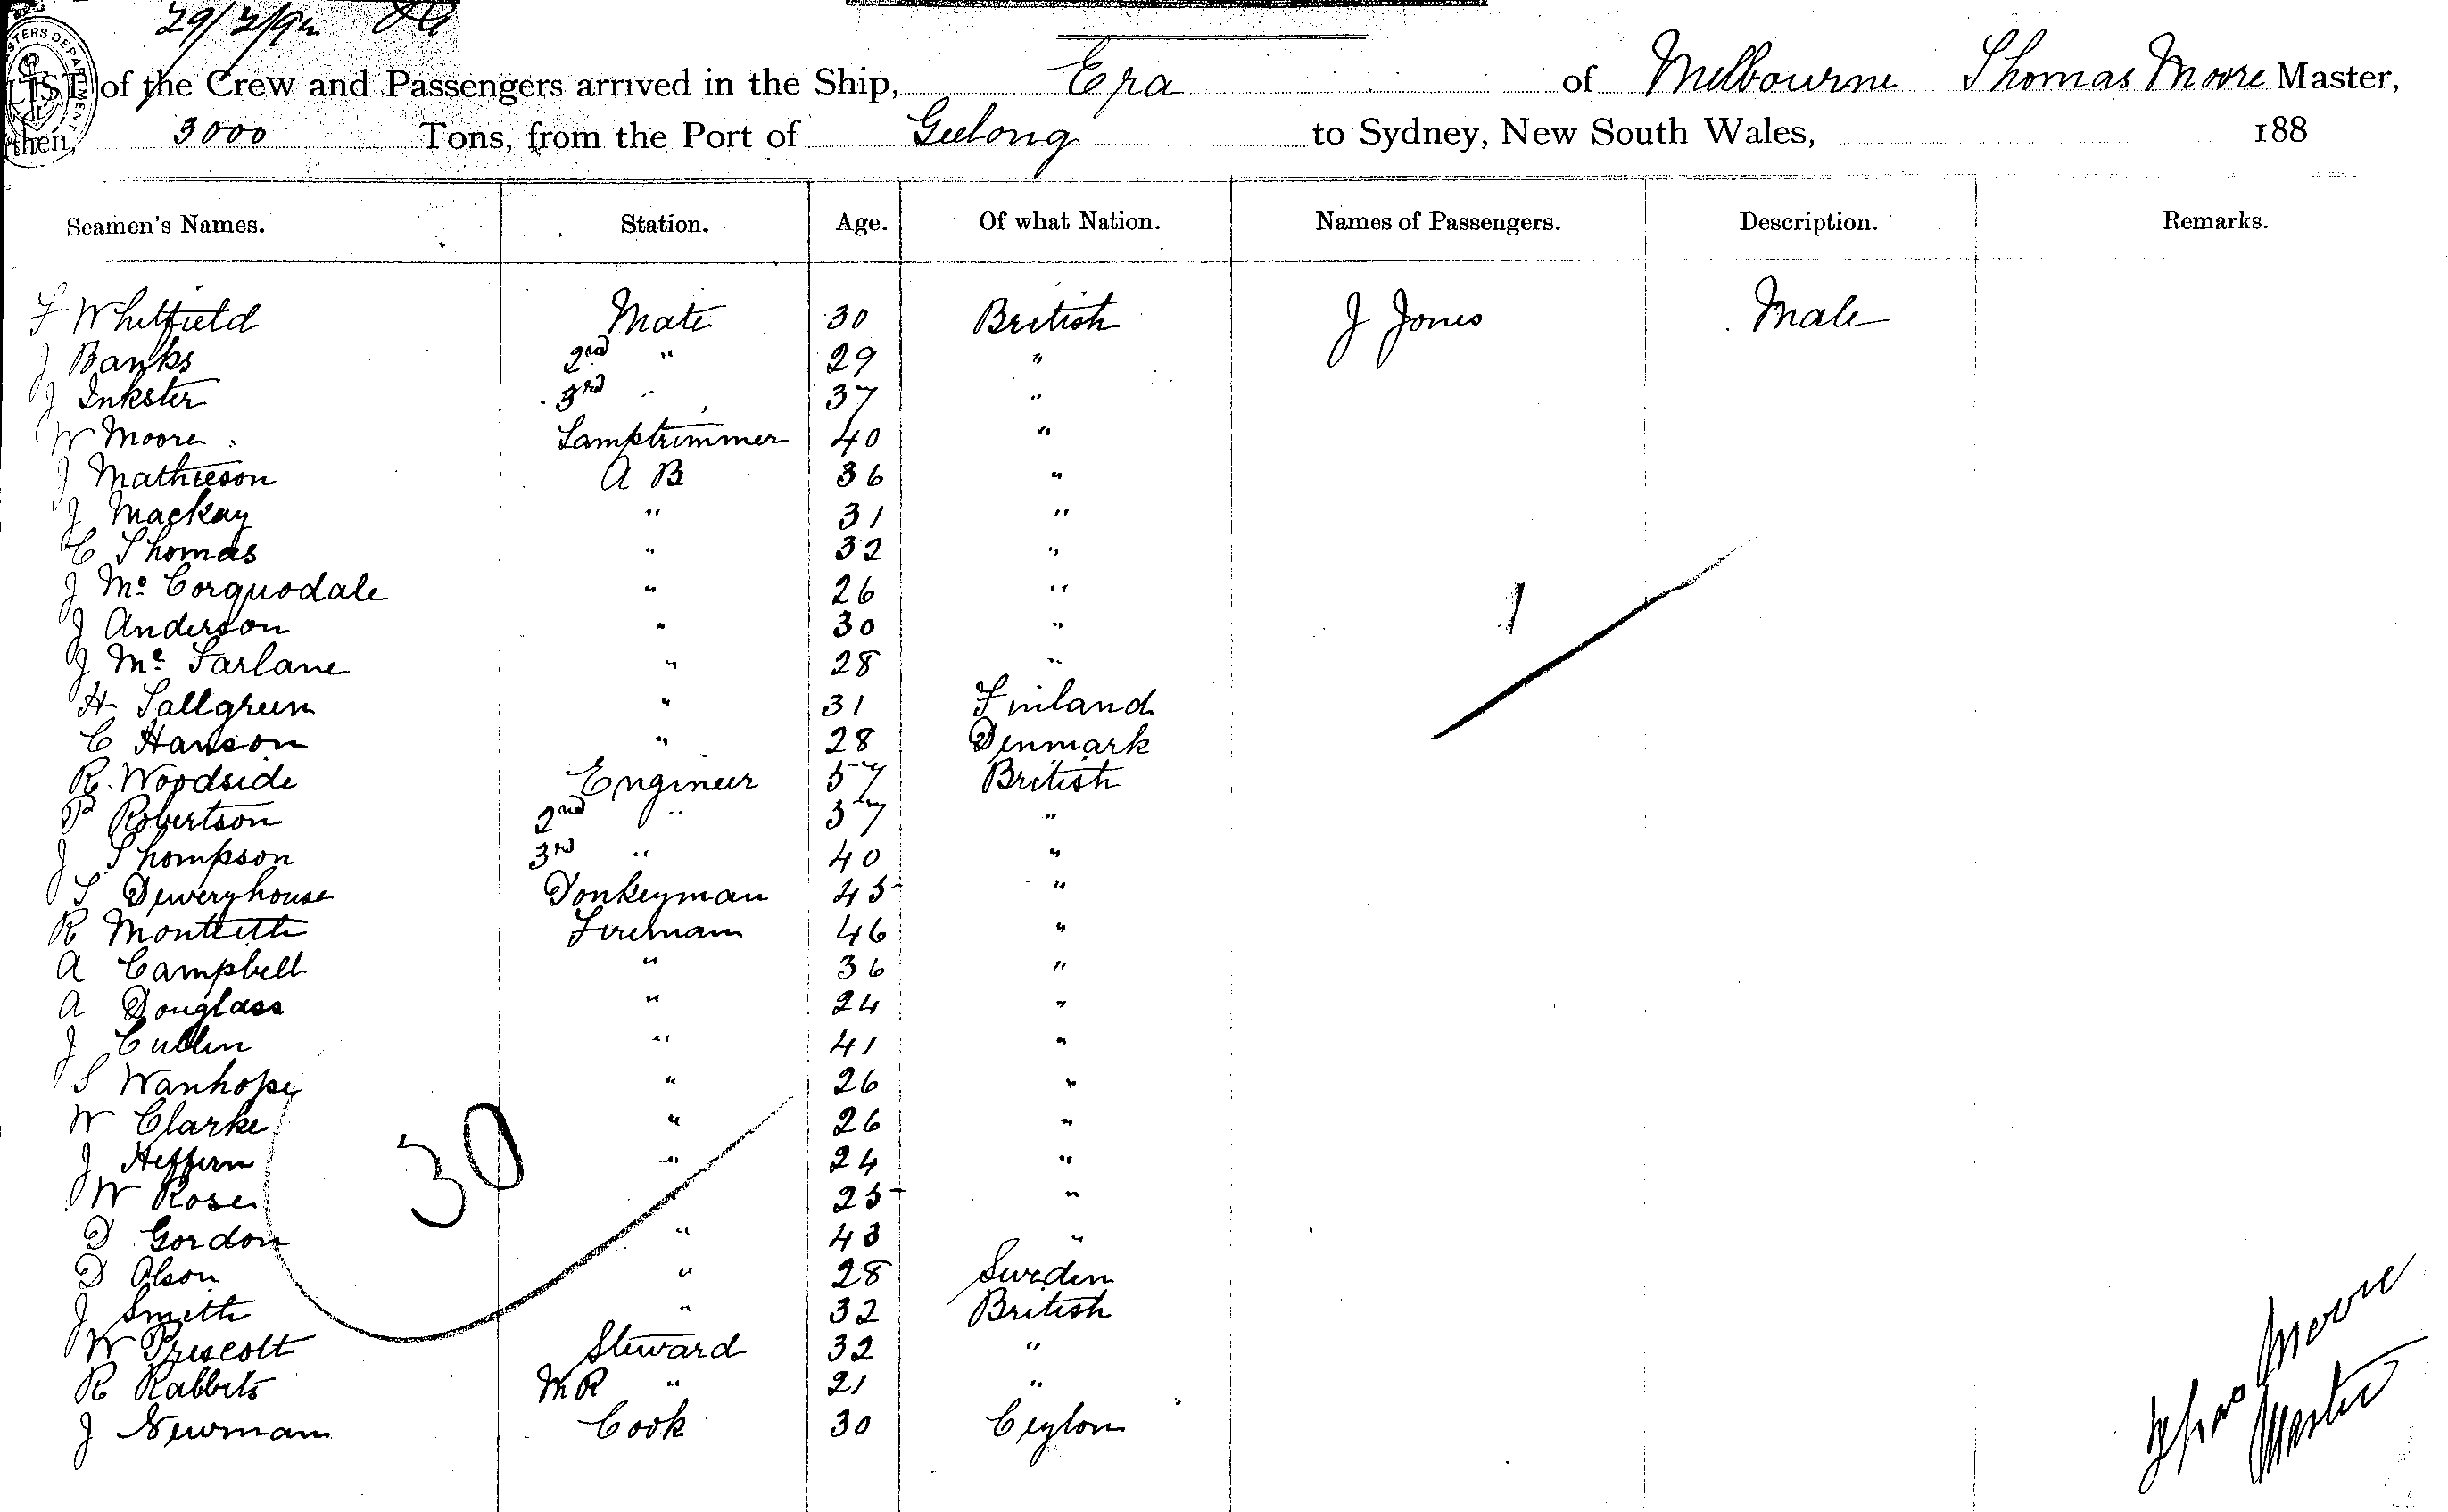 29/2/92
LIST of the Crew and Passengers arrived in the Ship, Era of Melbourne Thomas Moore Master,
then, 3000 Tons, from the Port of Geelong to Sydney, New South Wales, 188
Seamen's Names. Station. Age. Of what Nation. Names of Passengers. Description. Remarks.
F Whitfield Mate 30 British J Jones Male
J Banks 2nd " 29 "
J Inkster 3rd " 37 "
W Moore Lamptrimmer 40 "
J Mathieson A B 36 "
J Mackay " 31 "
C Thomas " 32 "
J Mc Corquodale " 26 " 1
J Anderson " 30 "
J Mc Farlane " 28 "
H Sallgreen " 31 Finland
C Hanson " 28 Denmark
R. Woodside Engineer 57 British
P Robertson 2nd " 37 "
J Thompson 3rd " 40 "
T Deweryhouse Donkeyman 45 "
R Monteith Fireman 46 "
A Campbell " 36 "
A Douglass " 24 "
J Cullen " 41 "
S Wanhope " 26 "
W Clarke " 26 "
J Heffern " 24 "
30
W Rose " 25 "
D Gordon " 43 "
D Olson " 28 Sweden
J Smith " 32 British
W Prescott Steward 32 "
R Rabbits M R " 21 "
J Newman Cook 30 Ceylon
Thos Moore
Master